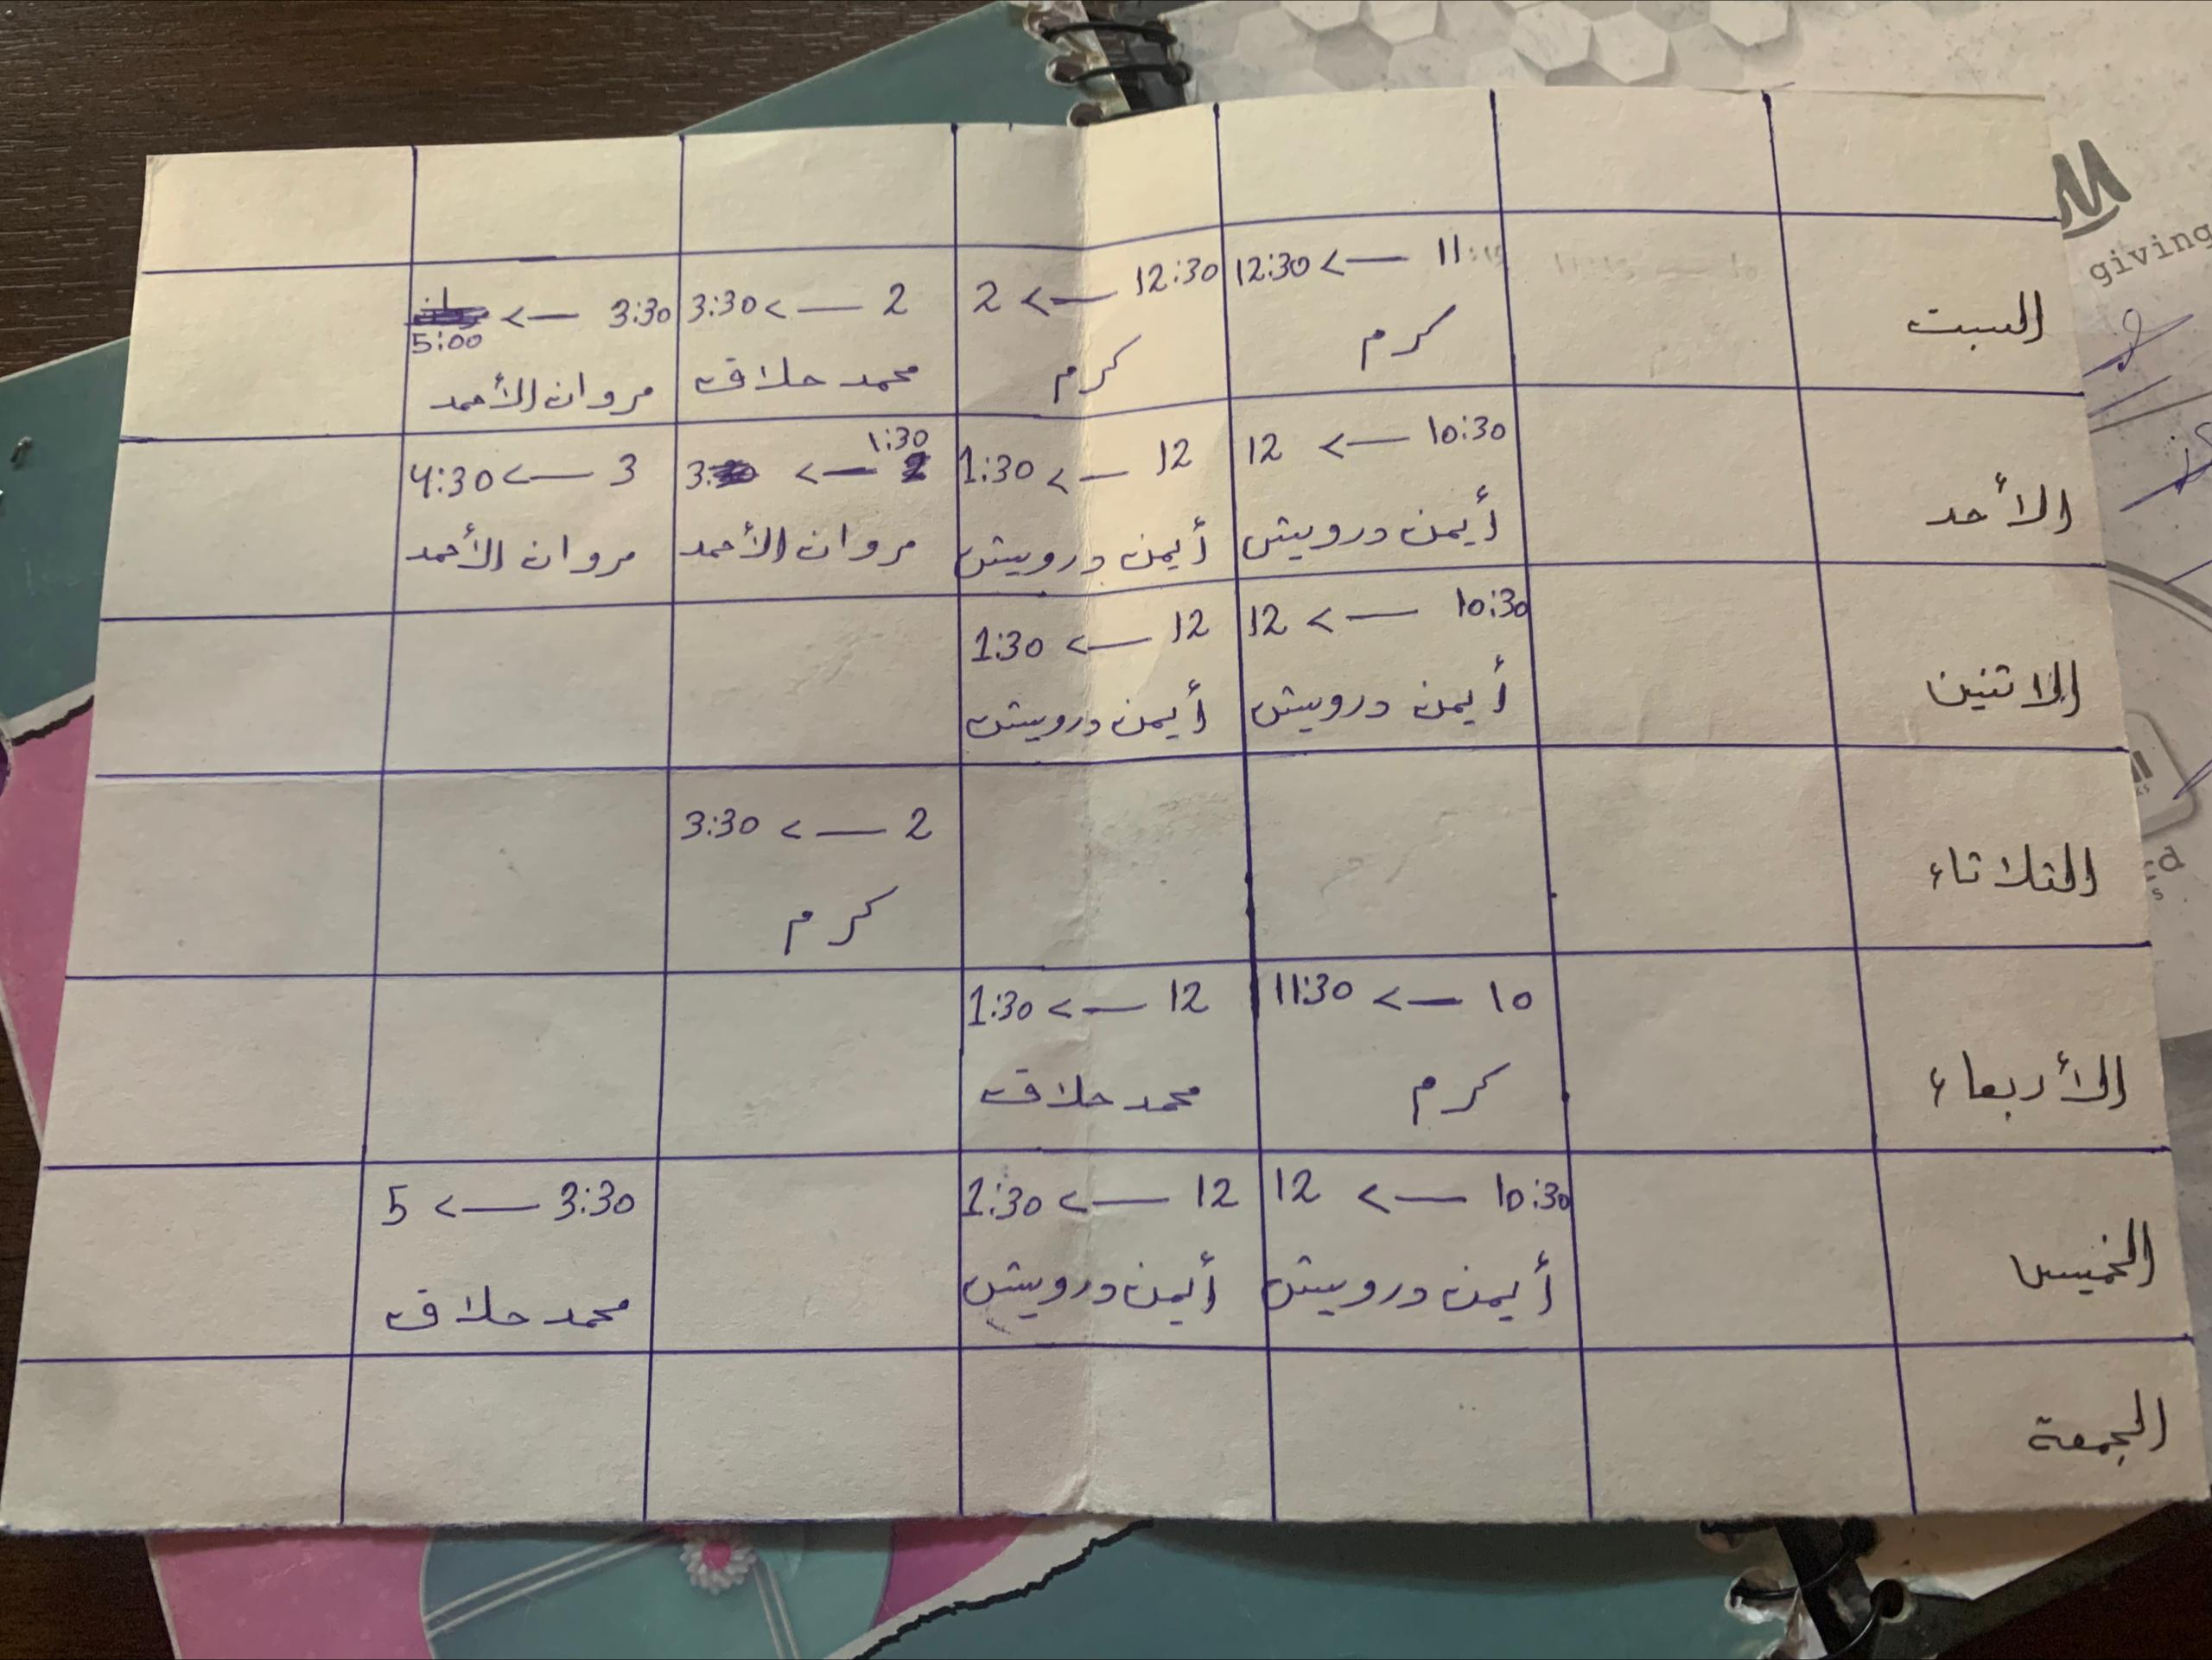 السبت
11 —> 12:30
كرم
12:30 —> 2
كرم
2 —> 3:30
محمد حلاق
3:30 —>
5:00
مروان الأحمد
الأحد
10:30 —> 12
أيمن درويش
12 —> 1:30
أيمن درويش
1:30
—> 3
مروان الأحمد
3 —> 4:30
مروان الأحمد
الاثنين
10:30 —> 12
أيمن درويش
12 —> 1:30
أيمن درويش
الثلاثاء
2 —> 3:30
كرم
الأربعاء
10 —> 11:30
كرم
12 —> 1:30
محمد حلاق
الخميس
10:30 —> 12
أيمن درويش
12 —> 1:30
أيمن درويش
3:30 —> 5
محمد حلاق
الجمعة
giving